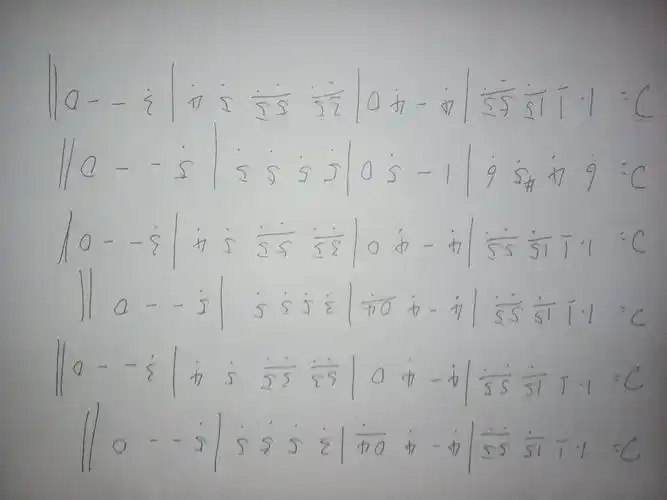 C: 1. 1 15 55 | 4 - 4 04 | 3 5 5 5 | 5 - - 0 ||
C: 1. 1 15 55 | 4 - 4 0 | 5 4 | 3 - - 0 ||
C: 1. 1 15 55 | 4 - 4 04 | 3 5 5 5 | 5 - - 0 ||
C: 1. 1 15 55 | 4 - 4 0 | 5 4 | 3 - - 0 |
C: 6 4 #5 6 | 1 - 5 0 | 5 5 5 5 | 5 - - 0 ||
C: 1. 1 15 55 | 4 - 4 0 | 5 4 | 3 - - 0 ||